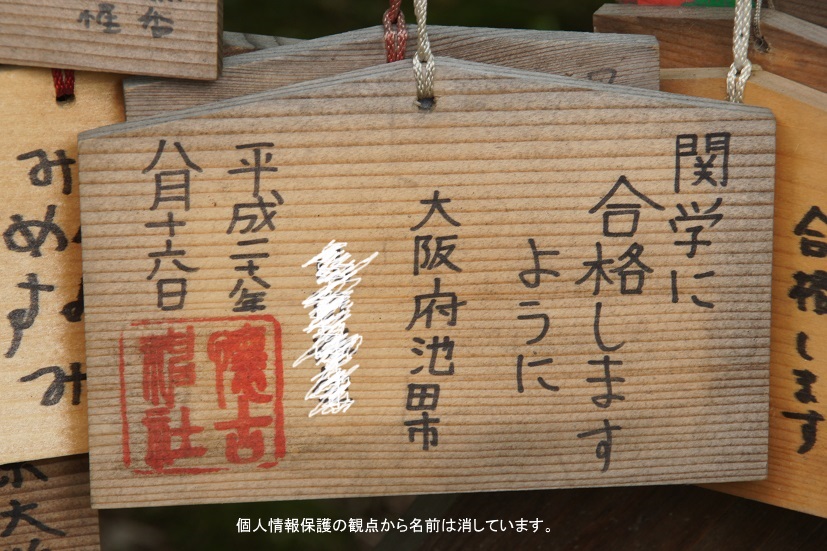 関学に
合格します
ように
大阪府池田市
平成二十八年
八月十六日
懐古
神社
合格します
みめ
す
み
大
個人情報保護の観点から名前は消しています。